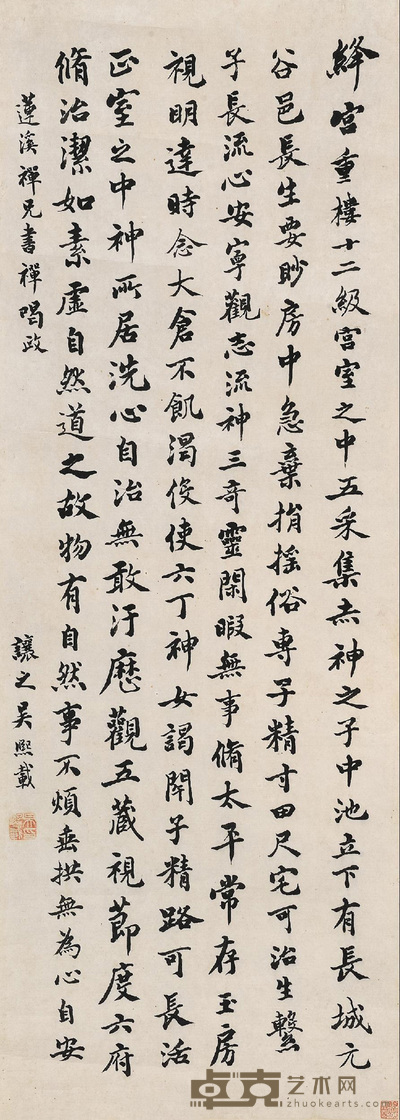 絳宮重樓十二級宮室之中五采集赤神之子中池立下有長城元
谷邑長生要眇房中急棄捐搖俗專子精寸田尺宅可治生繫
子長流心安寧觀志流神三奇靈閑暇無事脩太平常存玉房
視明達時念大倉不飢渴役使六丁神女謁閉子精路可長活
正室之中神所居洗心自治無敢汙歷觀五藏視節度六府
脩治潔如素虛自然道之故物有自然事不煩垂拱無為心自安
蓮溪禪兄書禪喝政
讓之吳熙載
卓克艺术网
www.zhuokearts.com